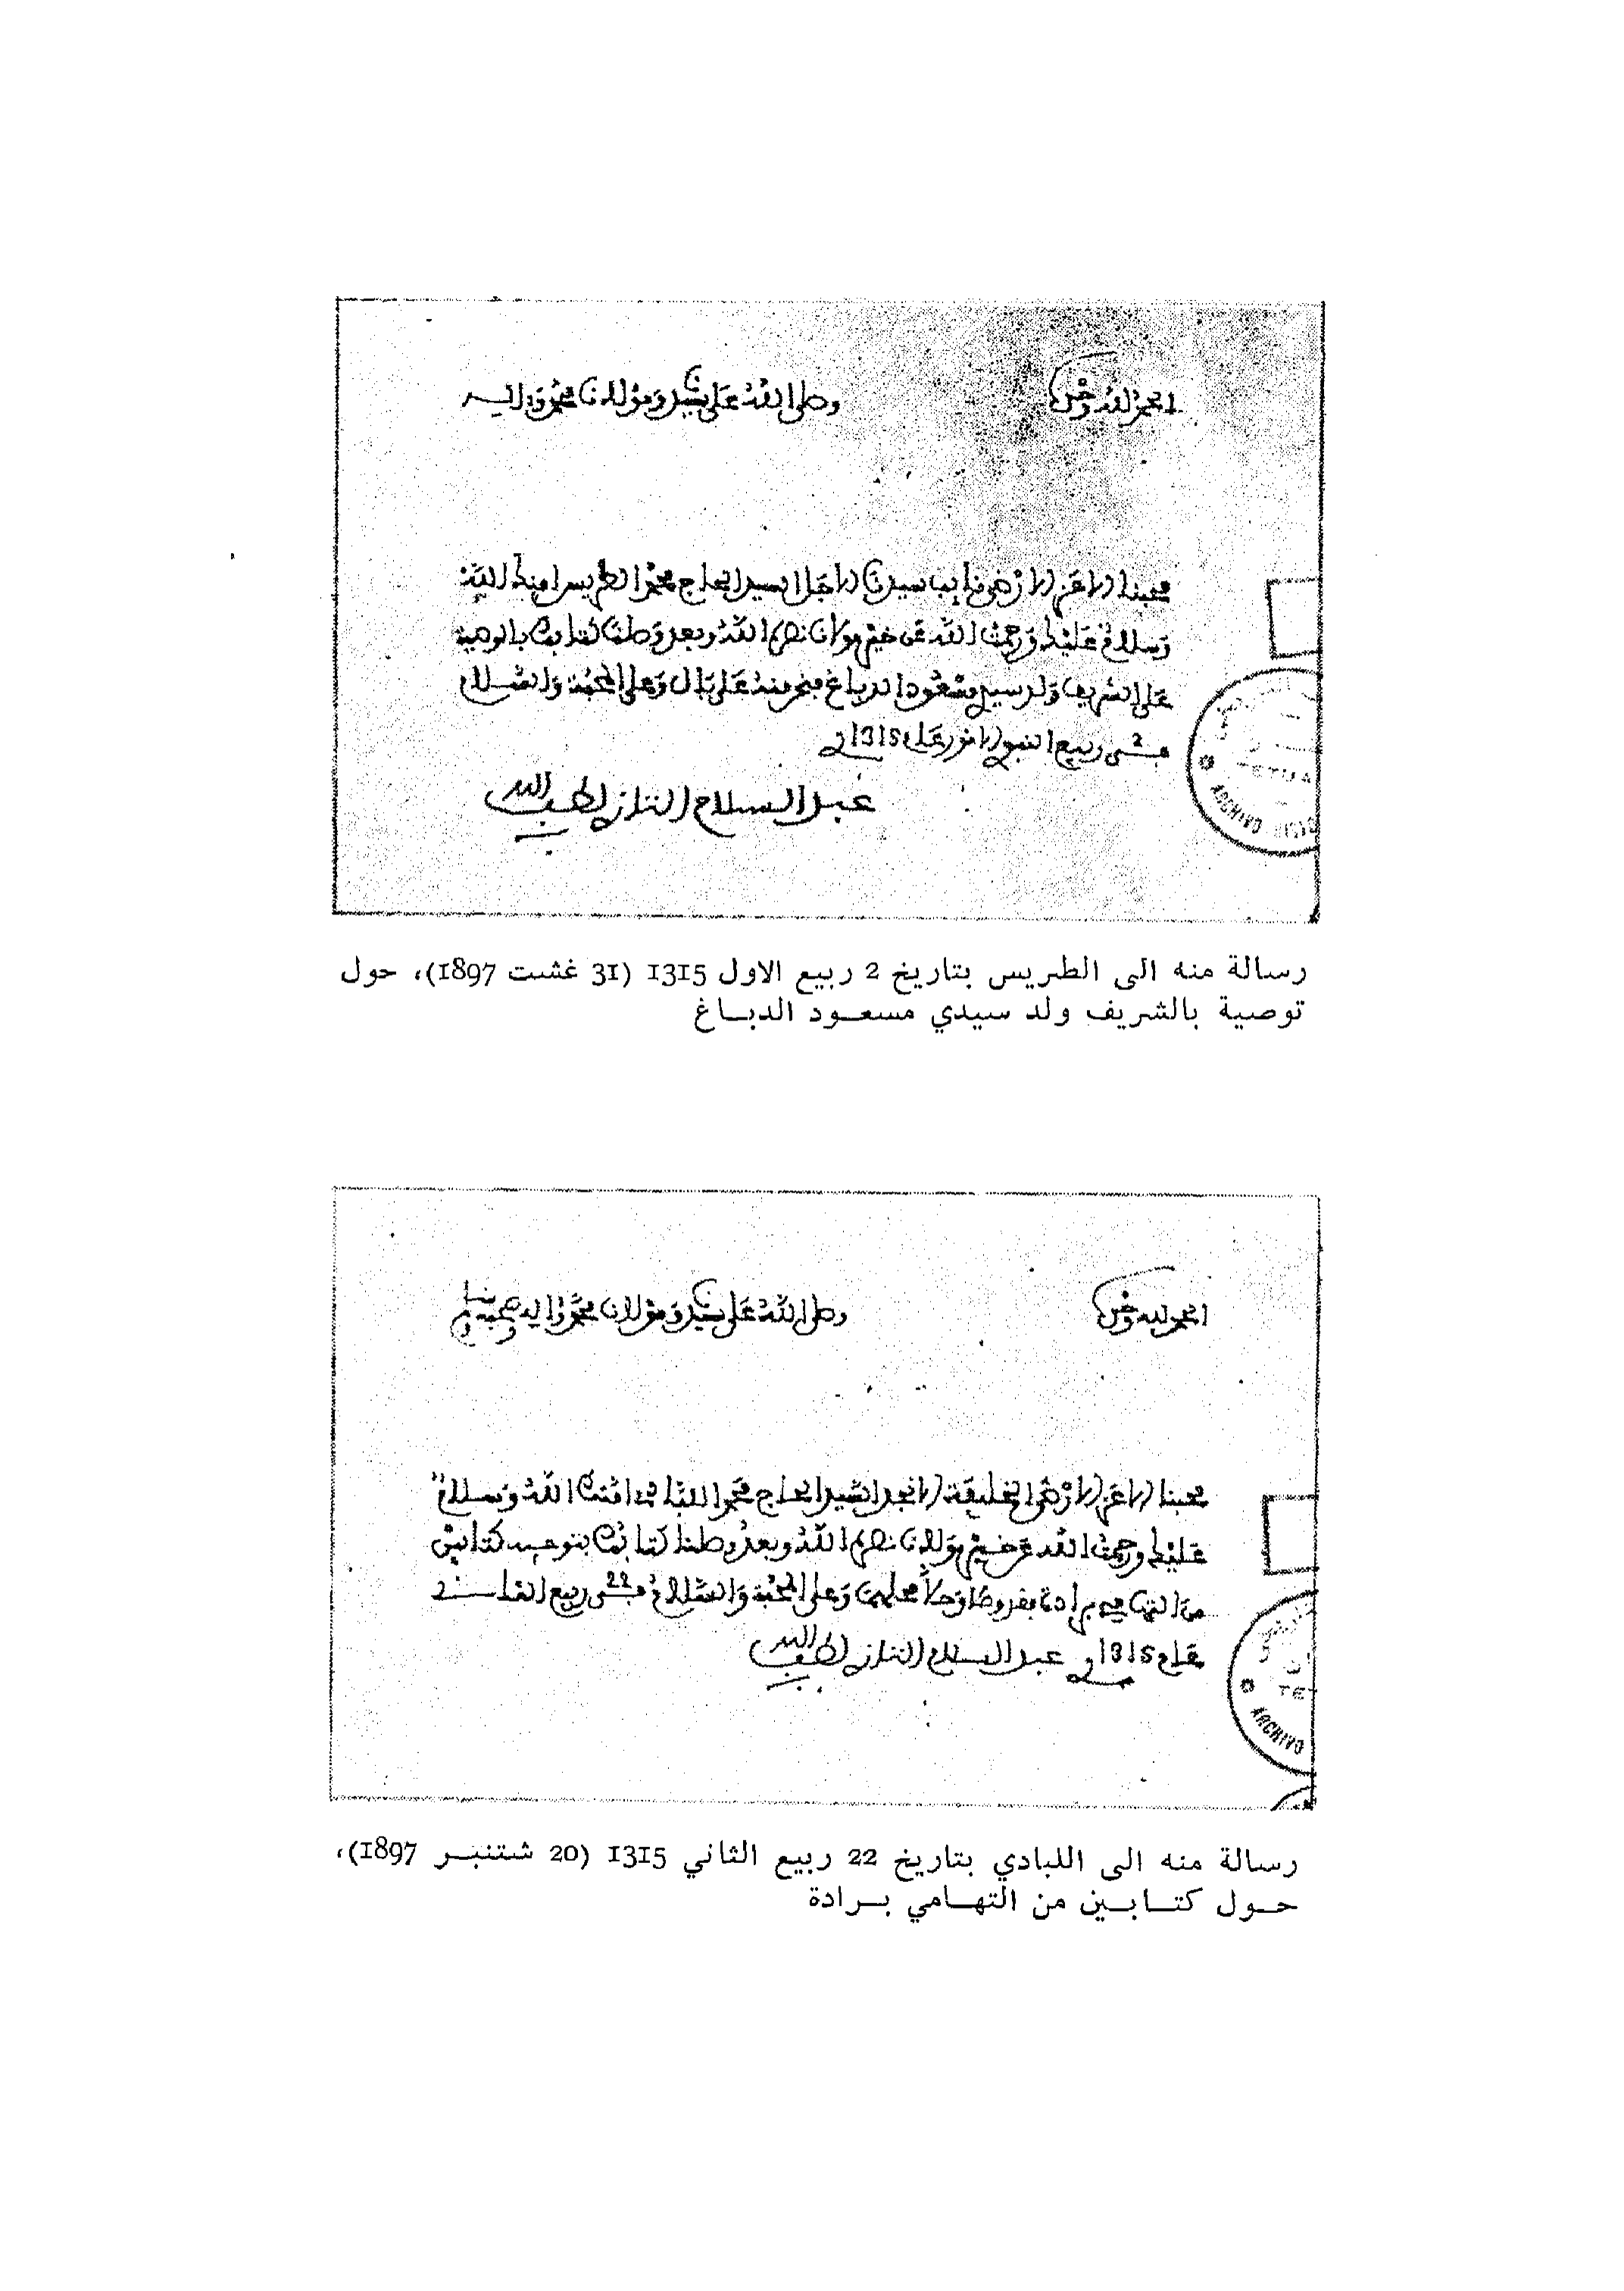 الحمد لله وحده
وصلى الله على سيدنا ومولانا محمد وآله
محبنا الاعز الارضى نايب سيدنا الاجل السيد الحاج محمد الطريس امنك الله
وسلام عليك ورحمت الله عن خير مولانا نصره الله وبعد وصلنا كتابك بالوصية
على الشريف ولد سيدي مسعود الدباغ فنحن منه على بال وعلى المحبة والسلام
في 2 ربيع النبوي الانور عام 1315
عبد السلام التازي لطف الله به
رسالة منه الى الطريس بتاريخ 2 ربيع الاول 1315 (31 غشت 1897)، حول
توصية بالشريف ولد سيدي مسعود الدباغ
الحمد لله وحده
وصلى الله على سيدنا ومولانا محمد وآله وصحبه وسلم
محبنا الاعز الارضى الخليفة الانجد السيد الحاج محمد اللبادي امنك الله وسلام
عليك ورحمت الله عن خير مولانا نصره الله وبعد وصلنا كتابك بتوجيه كتابين
من التهامي برادة فقد وصلا وعلى المحبة والسلام في 22 ربيع الثاني
عام 1315 عبد السلام التازي لطف الله به
رسالة منه الى اللبادي بتاريخ 22 ربيع الثاني 1315 (20 شتنبر 1897)،
حول كتابين من التهامي برادة
TETUA
ARCHIVO
TET
ARCHIVO